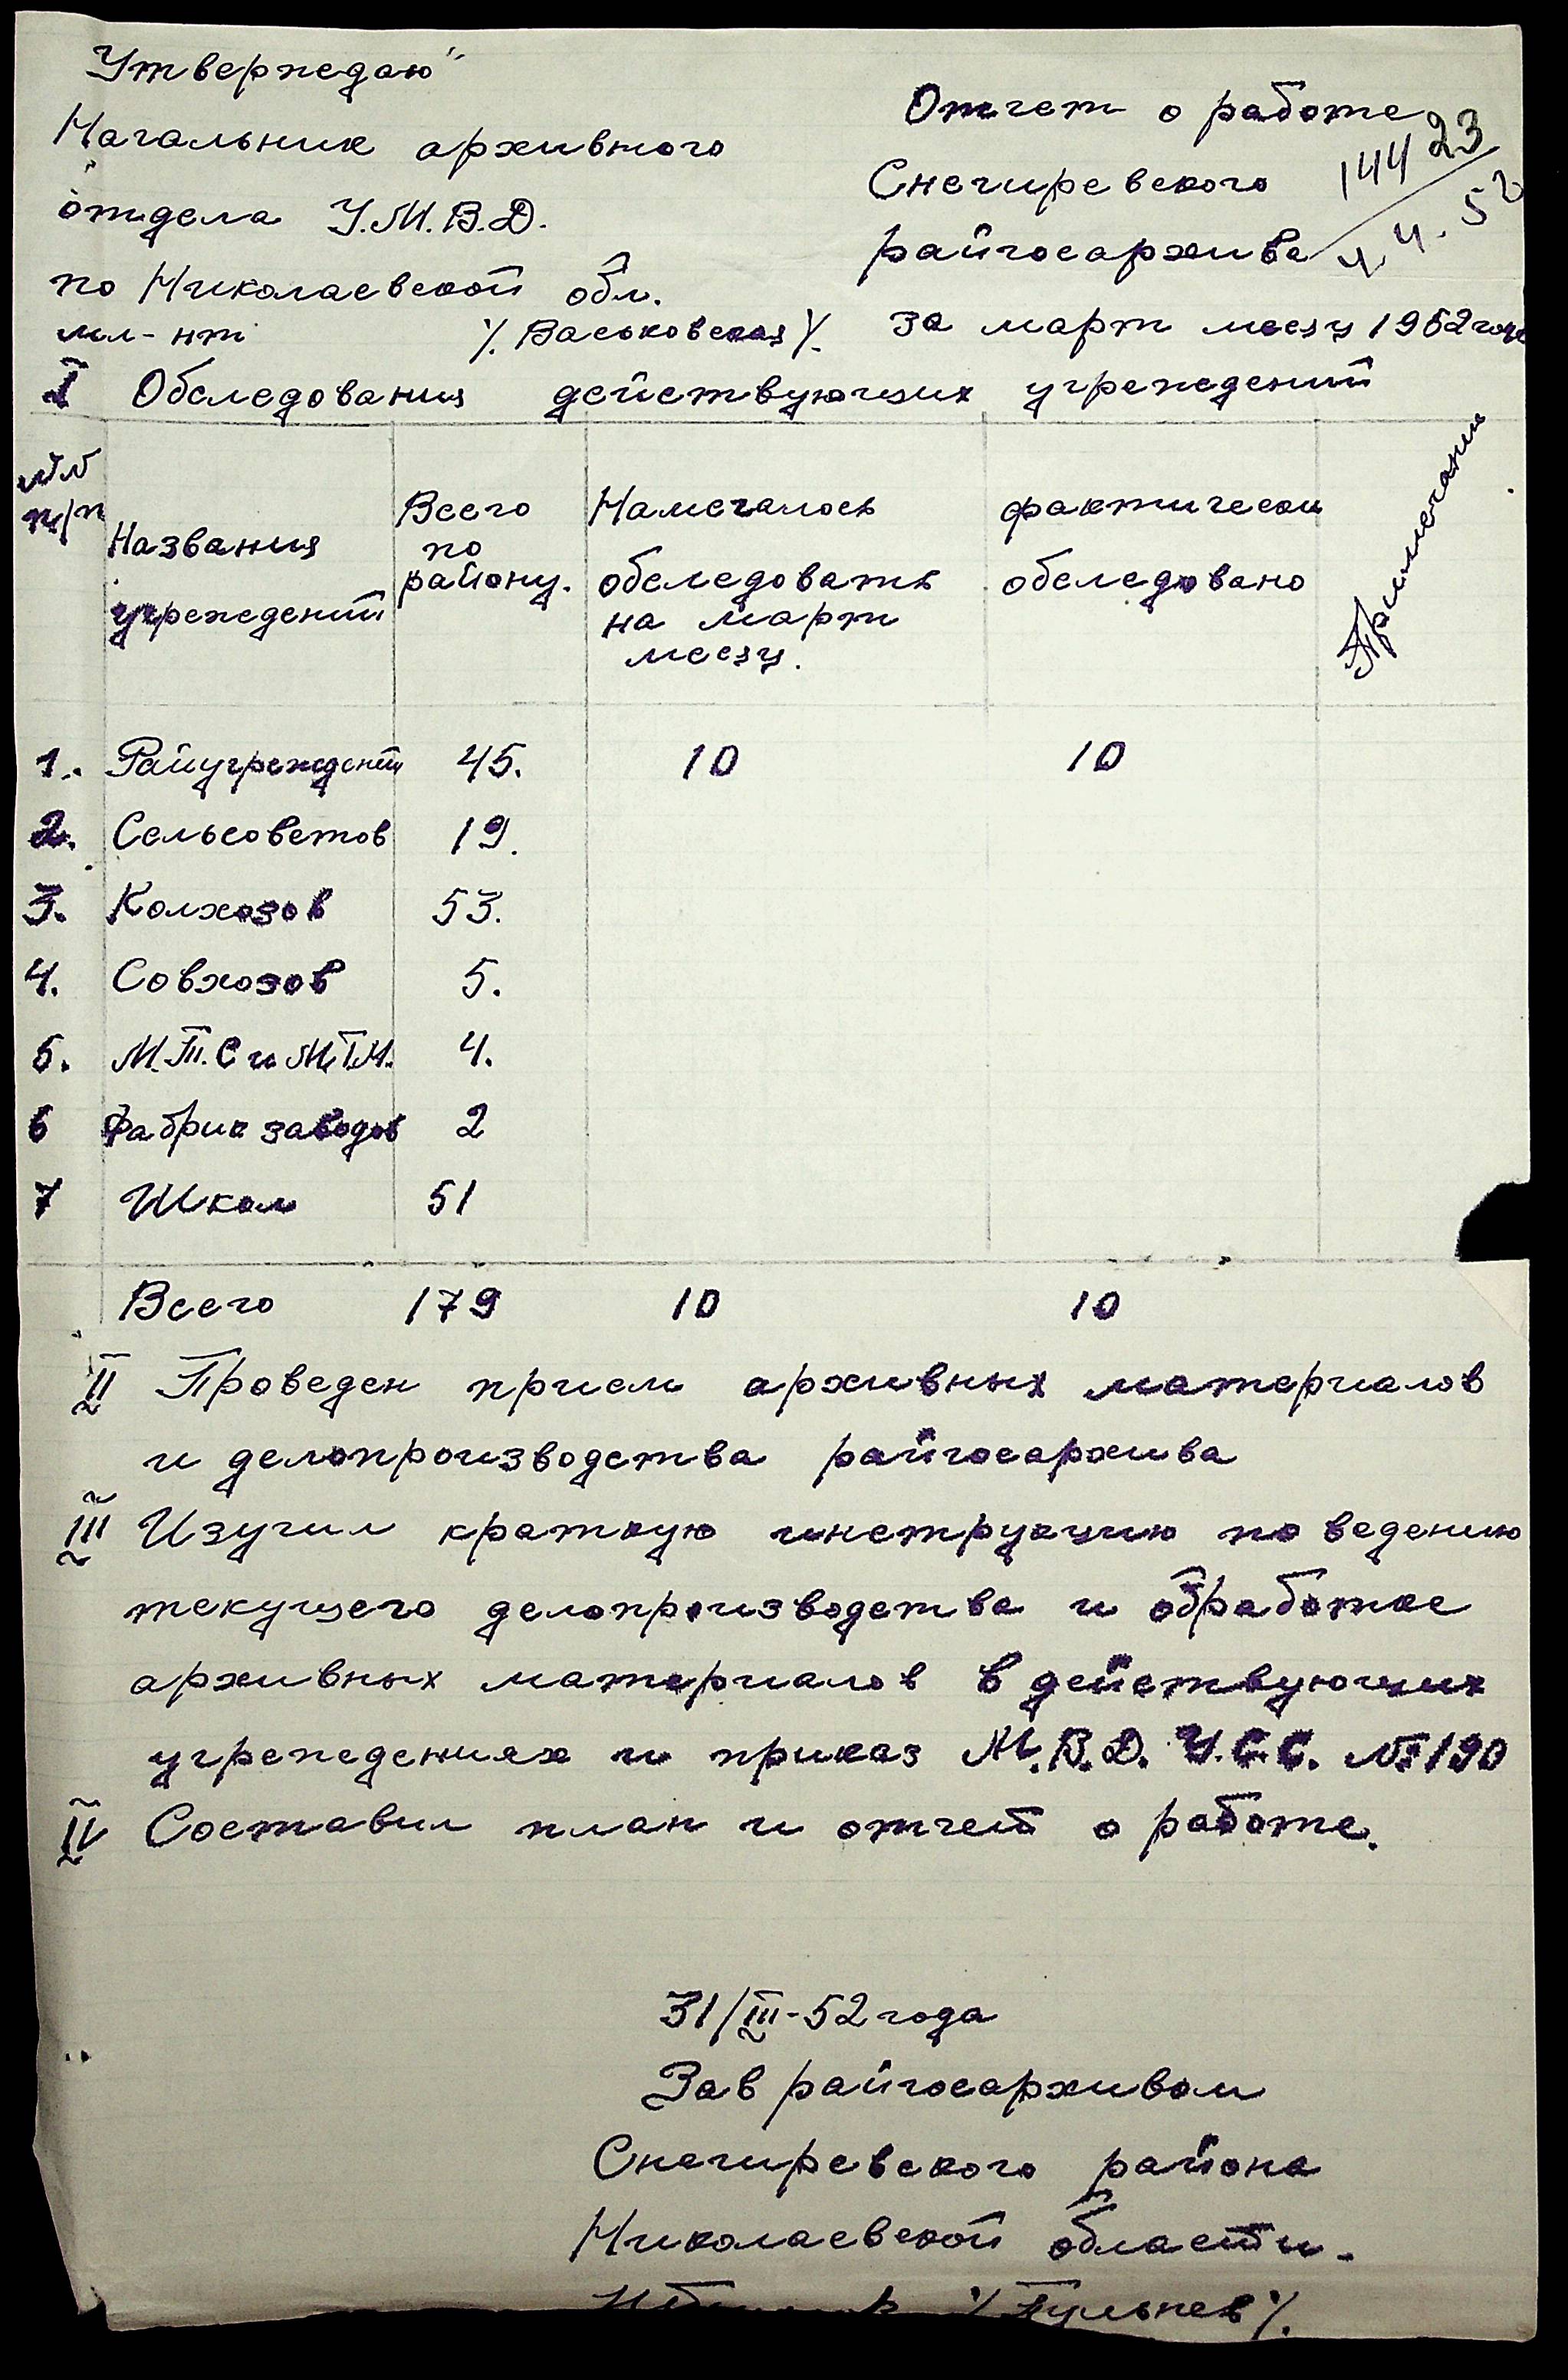 Утверждаю"
Начальник архивного
отдела У.М.В.Д.
по Николаевской обл.
мл-нт /. Васьковская /.
Отчет о работе
Снегиревского
райгосархива
за март месяц 1952 года
23
144
4. 4. 52
I Обследования действующих учреждений
№№ п/п
Названия
учреждений
Всего
по
району.
Намечалось
обследовать
на март
месяц.
фактически
обследовано
Примечание
1. Райучреждений 45. 10 10
2. Сельсоветов 19.
3. Колхозов 53.
4. Совхозов 5.
5. М.Т.С и М.Т.М. 4.
6 Фабрик заводов 2
7 Школ 51
Всего 179 10 10
II Проведен прием архивных материалов
и делопроизводства райгосархива
III Изучил краткую инструкцию по ведению
текущего делопроизводства и обработке
архивных материалов в действующих
учреждениях и приказ М.В.Д. У.С.С. №190
IV Составил план и отчет о работе.
31/III-52 года
Зав райгосархивом
Снегиревского района
Николаевской области.